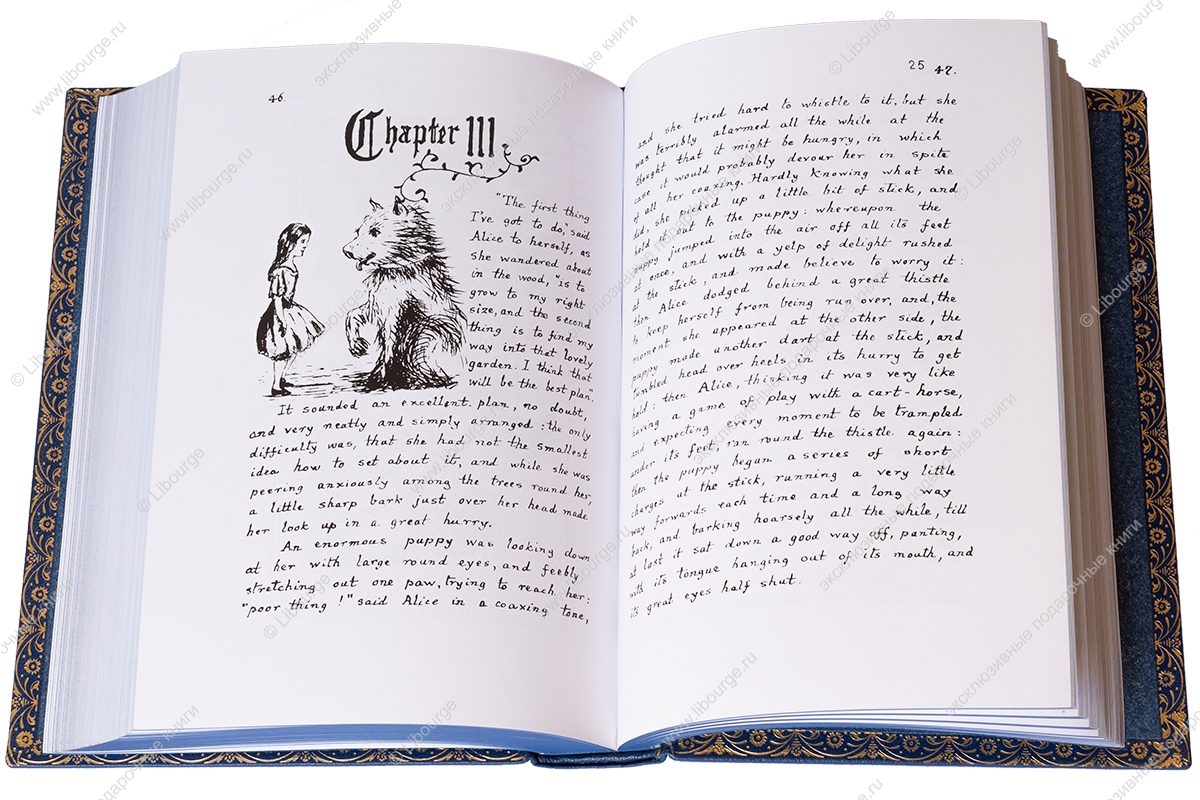 46.
Chapter III
"The first thing
I've got to do," said
Alice to herself, as
she wandered about
in the wood, "is to
grow to my right
size, and the second
thing is to find my
way into that lovely
garden. I think that
will be the best plan."
It sounded an excellent plan, no doubt,
and very neatly and simply arranged: the only
difficulty was, that she had not the smallest
idea how to set about it, and while she was
peering anxiously among the trees round her
a little sharp bark just over her head made
her look up in a great hurry.
An enormous puppy was looking down
at her with large round eyes, and feebly
stretching out one paw, trying to reach her:
"poor thing!" said Alice in a coaxing tone,
25 47.
and she tried hard to whistle to it, but she
was terribly alarmed all the while at the
thought that it might be hungry, in which
case it would probably devour her in spite
of all her coaxing. Hardly knowing what she
did, she picked up a little bit of stick, and
held it out to the puppy: whereupon the
puppy jumped into the air off all its feet
at once, and with a yelp of delight rushed
at the stick, and made believe to worry it:
then Alice dodged behind a great thistle
to keep herself from being run over, and, the
moment she appeared at the other side, the
puppy made another dart at the stick, and
tumbled head over heels in its hurry to get
hold: then Alice, thinking it was very like
having a game of play with a cart-horse,
and expecting every moment to be trampled
under its feet, ran round the thistle again:
then the puppy began a series of short
charges at the stick, running a very little
way forwards each time and a long way
back, and barking hoarsely all the while, till
at last it sat down a good way off, panting,
with its tongue hanging out of its mouth, and
its great eyes half shut.
www.libourge.ru
эксклюзивные подарочные книги
© Libourge